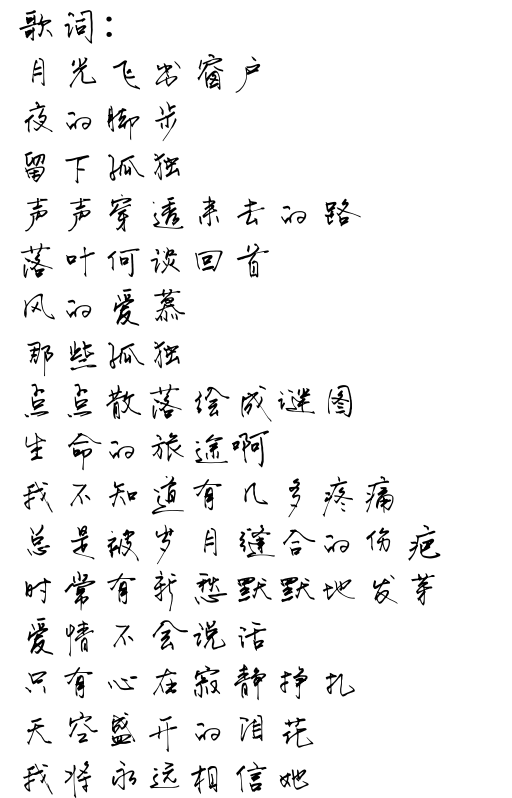 歌词：
月光飞出窗户
夜的脚步
留下孤独
声声穿透来去的路
落叶何谈回首
风的爱慕
那些孤独
点点散落绘成谜图
生命的旅途啊
我不知道有几多疼痛
总是被岁月缝合的伤疤
时常有新愁默默地发芽
爱情不会说话
只有心在寂静挣扎
天空盛开的泪花
我将永远相信她